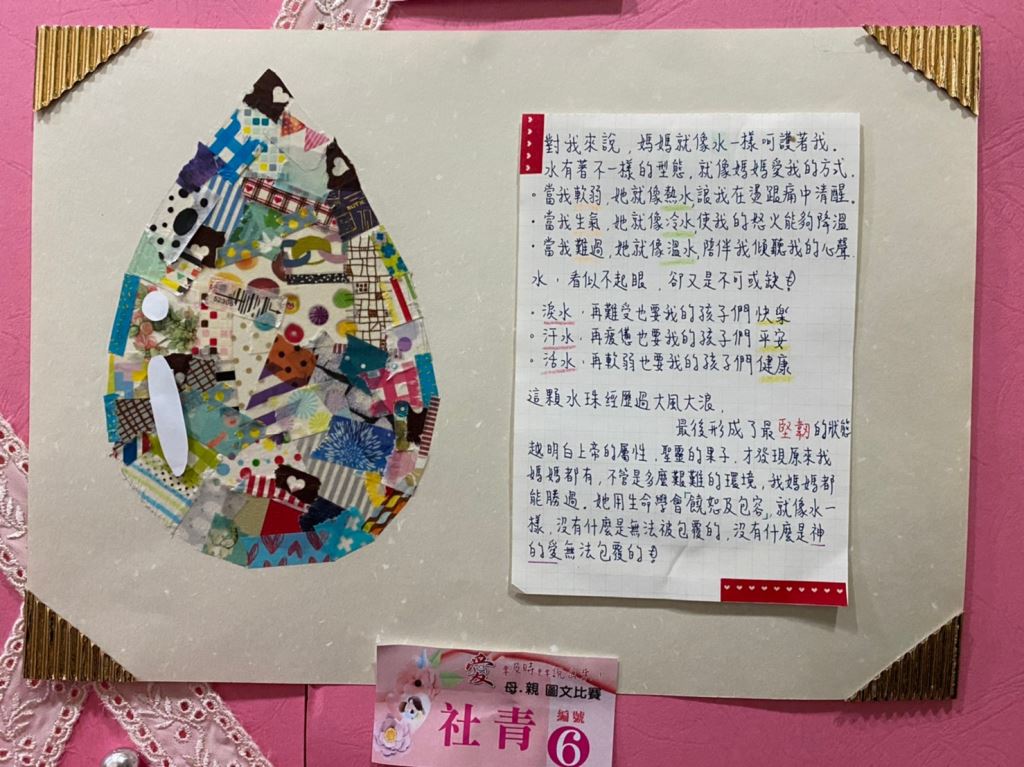 對我來說，媽媽就像水一樣呵護著我.
水有著不一樣的型態，就像媽媽愛我的方式.
·當我軟弱，她就像熱水讓我在燙跟痛中清醒.
·當我生氣，她就像冷水使我的怒火能夠降溫
·當我難過，她就像溫水，陪伴我傾聽我的心聲.
水，看似不起眼，卻又是不可或缺！
·淚水，再難受也要我的孩子們快樂
·汗水，再疲憊也要我的孩子們平安
·活水，再軟弱也要我的孩子們健康
這顆水珠經歷過大風大浪，
最後形成了最堅韌的狀態
越明白上帝的屬性，聖靈的果子，才發現原來我
媽媽都有，不管是多麼艱難的環境，我媽媽都
能勝過。她用生命學會「饒恕及包容」，就像水一
樣，沒有什麼是無法被包覆的，沒有什麼是神
的愛無法包覆的！
52305
愛
母.親 圖文比賽
社青
編號
6